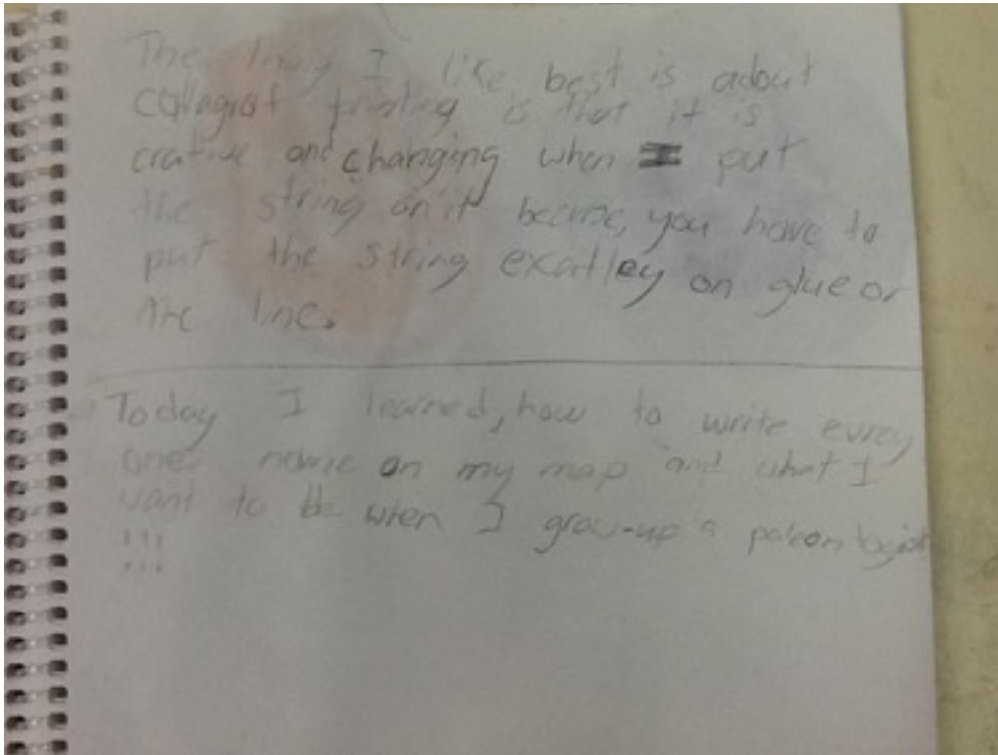 The thing I like best is adout
Collagraf printing is that it is
crative and changing when I put
the string on it becuse, you have to
put the string excatley on glue or
the line.
Today I learned, how to write eurey
ones name on my map and what I
want to be when I grow-up a
!!!